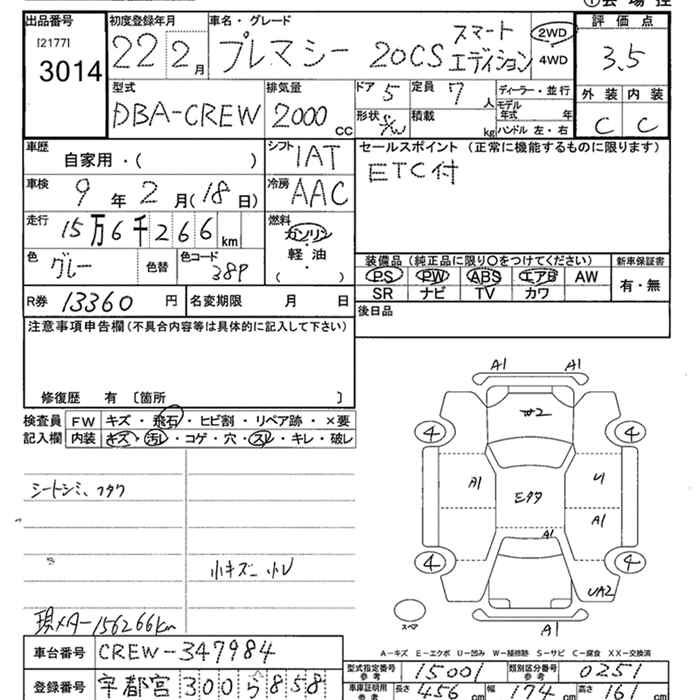 出品番号 初度登録年月 車名・グレード 評価点
[2177] 3014 22 2月 プレマシー 20CS スマートエディション 2WD 4WD 3.5
型式 排気量 ドア 5 定員 7人 ディーラー・並行 外装 内装
DBA-CREW 2000cc 形状 S/W 積載 kg モデル年式 年 ハンドル 左・右 C C
車歴 自家用・( ) シフト IAT セールスポイント (正常に機能するものに限ります)
車検 9年2月(18日) 冷房 AAC ETC付
走行 15万6千266km 燃料 ガソリン・軽油・( )
色 グレー 色替 色コード 38P 装備品 (純正品に限り○をつけてください) 新車保証書
PS PW ABS エアB AW 有・無
R券 13360円 名変期限 月 日 SR ナビ TV カワ
注意事項申告欄 (不具合内容等は具体的に記入して下さい) 後日品
修復歴 有 〔箇所 〕
検査員 FW キズ・飛石・ヒビ割・リペア跡・×要
記入欄 内装 キズ・汚レ・コゲ・穴・スレ・キレ・破レ
A1 A1
W2
4 4
シートシミ、フタワ A1 U1
A1
A1
小キズ 小U 4 4
UA2
現メーター156266km スペア A1
A-キズ E-エクボ U-凹み W-補修跡 S-サビ C-腐食 XX-交換済
車台番号 CREW-347984 型式指定番号 参考 15001 類別区分番号 参考 0251
登録番号 宇都宮 300 5858 車庫証明用 参考 長さ 456cm 幅 174cm 高さ 161cm